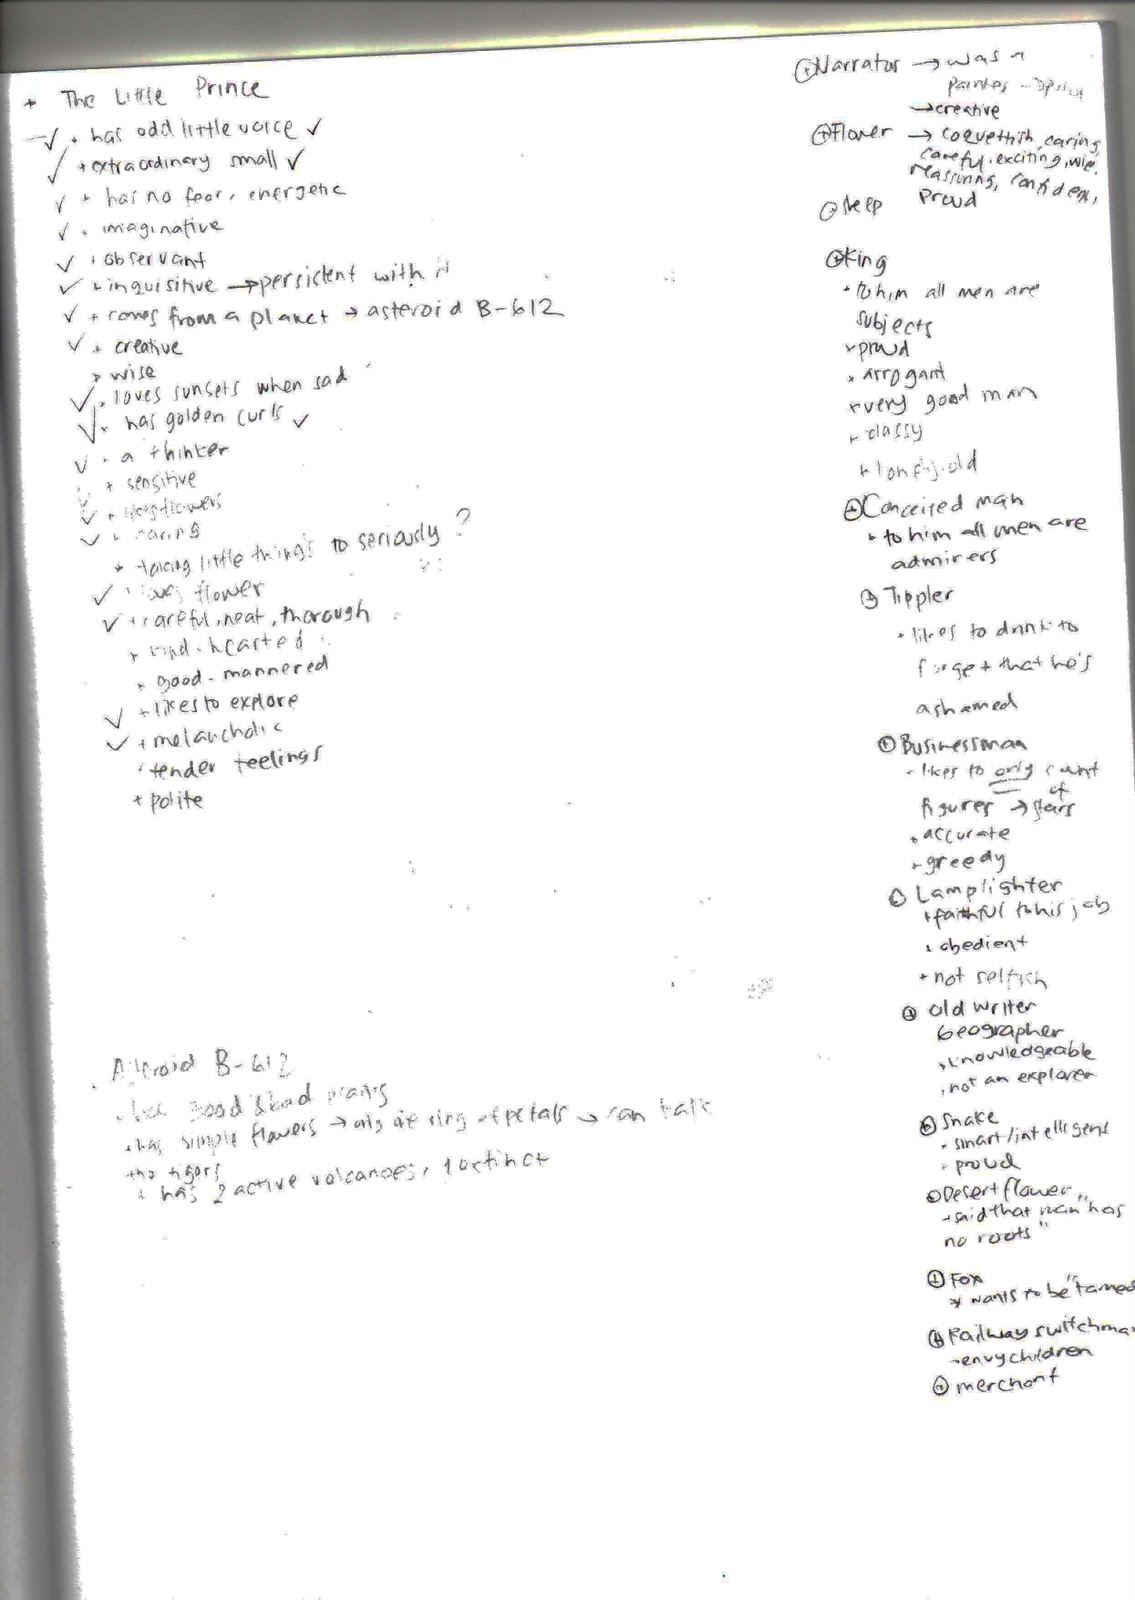 + The Little Prince
+ has odd little voice ✓
✓ + extraordinary small ✓
✓ + has no fear, energetic
✓ + imaginative
✓ + observant
✓ + inquisitive → persistent with it
✓ + comes from a planet → asteroid B-612
✓ + creative
+ wise
✓ + loves sunsets when sad
✓ + has golden curls ✓
✓ + a thinker
+ sensitive
✓ + flowers
✓ + caring
+ taking little things to seriously ?
✓ + loves flower
✓ + careful, neat, thorough
+ kind-hearted
+ good-mannered
✓ + likes to explore
✓ + melancholic
+ tender feelings
+ polite
Asteroid B-612
has good & bad plants
+ has simple flowers → only one ring of petals → can talk
+ no tigers
+ has 2 active volcanoes, 1 extinct
Narrator → was a
→ creative
Flower → coquettish, caring,
careful, exciting,
reassuring, confident,
proud
King
+ to him all men are
subjects
+ proud
+ arrogant
+ very good man
+ classy
+ lonely, old
Conceited man
+ to him all men are
admirers
Tippler
+ likes to drink to
forget that he's
ashamed
Businessman
- likes to only count
of
figures → stars
+ accurate
+ greedy
Lamplighter
+ faithful to his job
+ obedient
+ not selfish
old writer
Geographer
+ knowledgeable
+ not an explorer
Snake
- smart/intelligent
+ proud
Desert flower
- said that man "has
no roots"
Fox
* wants to be "tamed
Railway switchman
- envy children
merchant